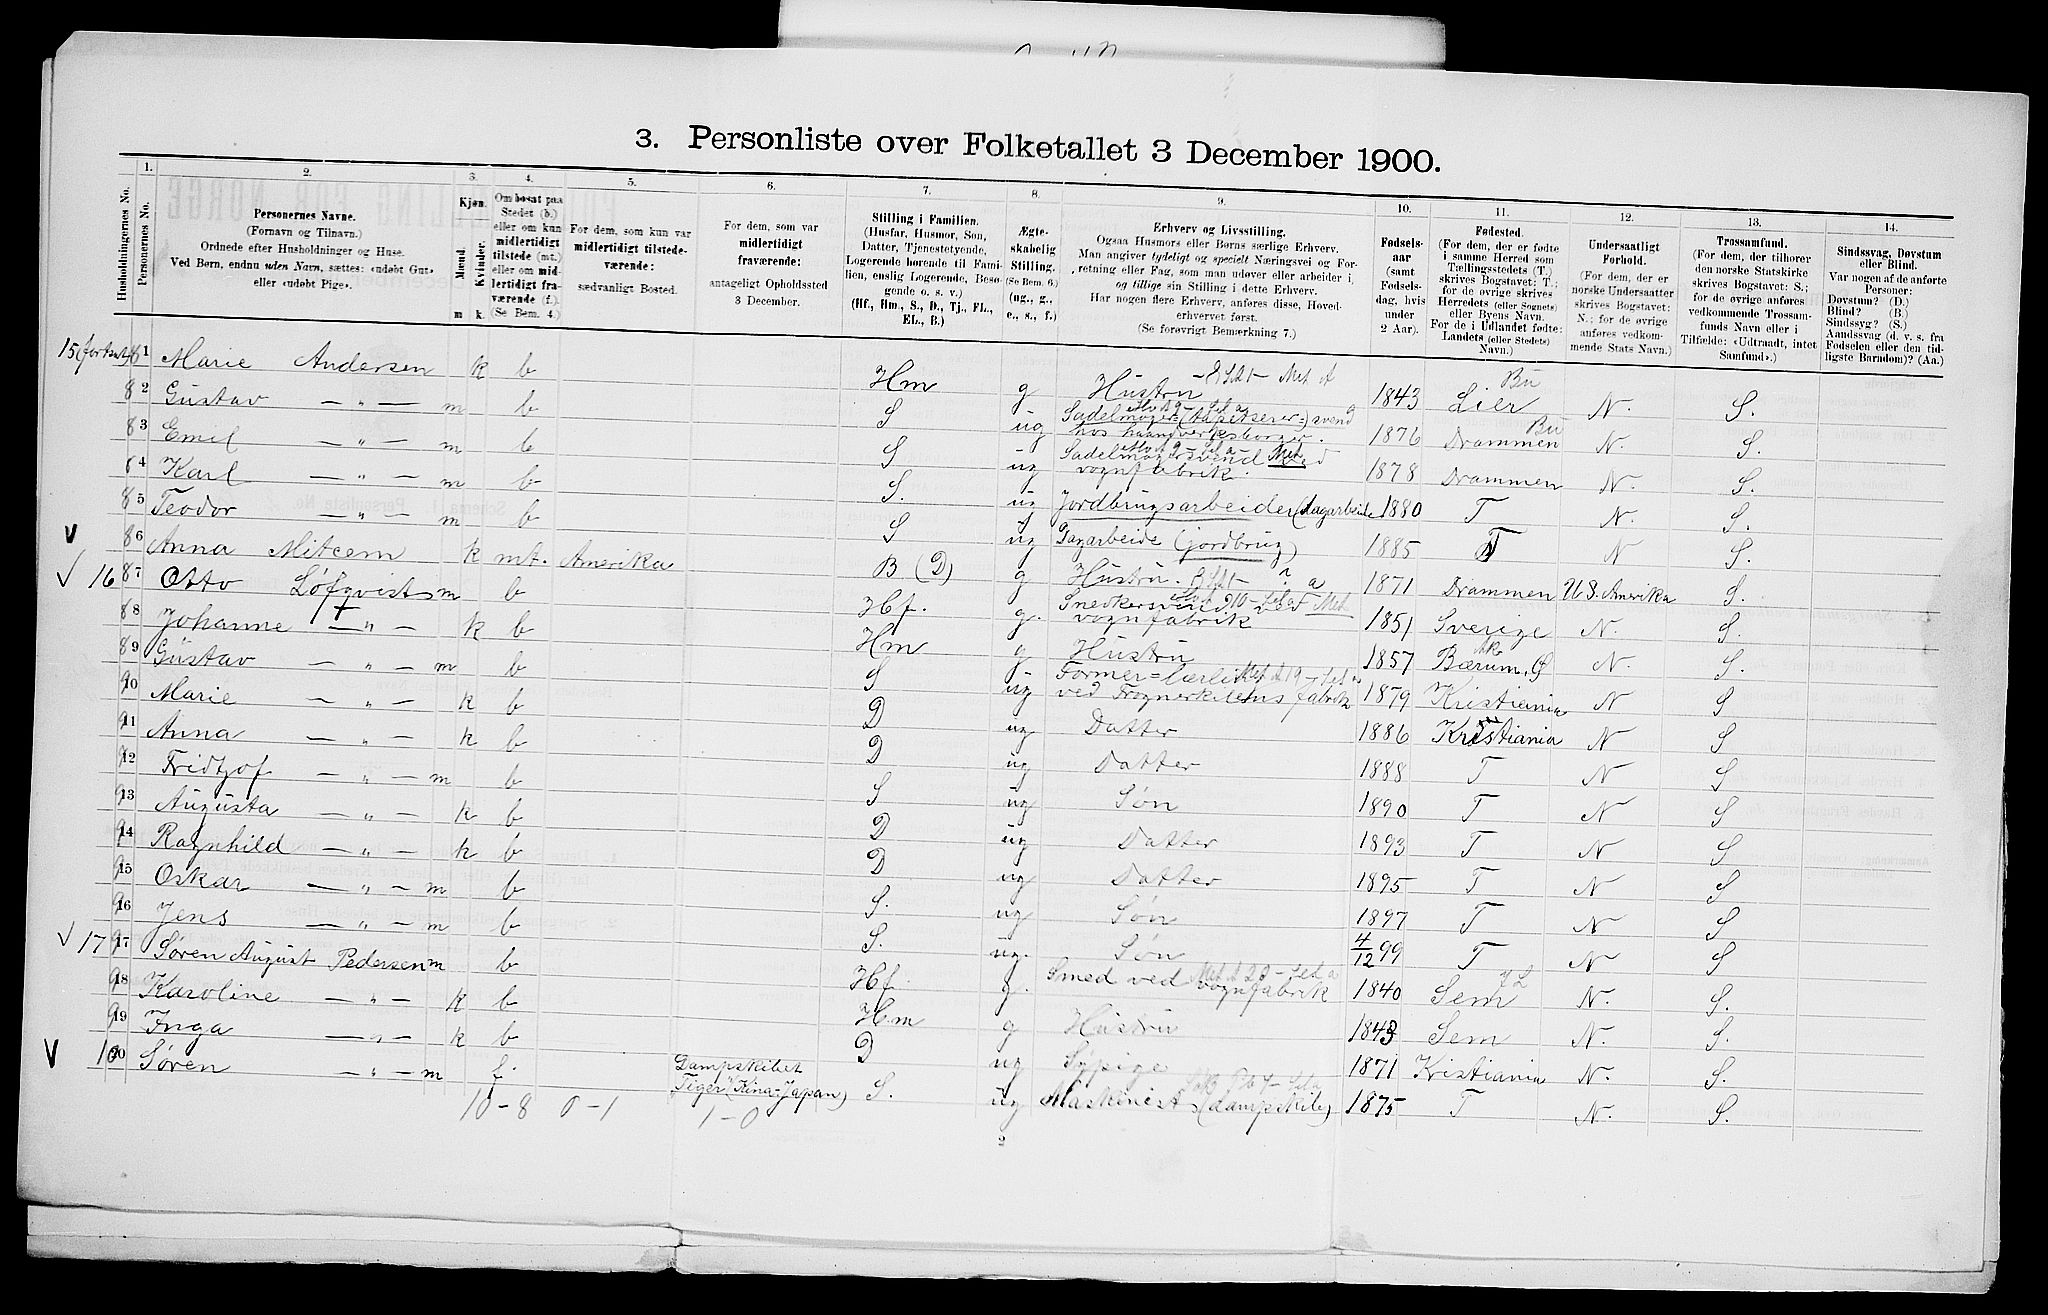 3. Personliste over Folketallet 3 December 1900.
Husholdningernes No.
1. Personernes No.
2. Personernes Navne.
(Fornavn og Tilnavn.)
Ordnede efter Husholdninger og Huse.
Ved Børn, endnu uden Navn, sættes: «udøbt Gut»
eller «udøbt Pige».
3. Kjøn.
Mænd. Kvinder.
m k.
4. Om bosat paa
Stedet (b.)
eller om kun
midlertidigt
tilstede (mt.)
eller om mid-
lertidigt fra-
værende (f.).
(Se Bem. 4.)
5. For dem, som kun var
midlertidigt tilstede-
værende:
sædvanligt Bosted.
6. For dem, som var
midlertidigt
fraværende:
antageligt Opholdssted
3 December.
7. Stilling i Familien.
(Husfar, Husmor, Søn,
Datter, Tjenestetyende,
Logerende hørende til Fami-
lien, enslig Logerende, Besø-
gende o. s. v.)
(Hf., Hm., S., D., Tj., FL.,
EL., B.)
8. Ægte-
skabelig
Stilling.
(Se Bem. 6.)
(ug., g.,
e., s., f.)
9. Erhverv og Livsstilling.
Ogsaa Husmors eller Børns særlige Erhverv.
Man angiver tydeligt og specielt Næringsvei og For-
retning eller Fag, som man udøver eller arbeider i,
og tillige sin Stilling i dette Erhverv.
Har nogen flere Erhverv, anføres disse, Hoved-
erhvervet først.
(Se forøvrigt Bemærkning 7.)
10. Fødsels-
aar
(samt
Fødsels-
dag, hvis
under
2 Aar).
11. Fødested.
(For dem, der er fødte
i samme Herred som
Tællingsstedets (T.)
skrives Bogstavet: T.;
for de øvrige skrives
Herredets (eller Sognets)
eller Byens Navn.
For de i Udlandet fødte:
Landets (eller Stedets)
Navn.)
12. Undersaatligt
Forhold.
(For dem, der er
norske Undersaatter
skrives Bogstavet:
N.; for de øvrige
anføres vedkom-
mende Stats Navn.)
13. Trossamfund.
(For dem, der tilhører
den norske Statskirke
skrives Bogstavet: S.;
for de øvrige anføres
vedkommende Trossam-
funds Navn eller i
Tilfælde: «Udtraadt, intet
Samfund».)
14. Sindssvag, Døvstum
eller Blind.
Var nogen af de anførte
Personer:
Døvstum? (D.)
Blind? (B.)
Sindssyg? (S.)
Aandssvag (d. v. s. fra
Fødselen eller den tid-
ligste Barndom)? (Aa.)
15 (fortsat) 81 Marie Andersen k b Hm g Hustru 1843 Lier Bu N. S.
82 Gustav — " — m b S ug Sadelmager- (tapetserer-) svend hos haandverksborger. 1876 Drammen Bu N. S.
83 Emil — " — m b S ug Sadelmagersvend ved vognfabrik. 1878 Drammen N. S.
84 Karl — " — m b S. ug Jordbrugsarbeider (dagarbeide 1880 T N. S.
85 Teodor — " — m b S ug Dagarbeide (jordbrug) 1885 T N S.
V 86 Anna Mitcem k mt. Amerika B (D) g Hustru. 1871 Drammen U S. Amerika S.
V 16 87 Otto Løfqvist m b Hf. g. Snedkersvend ved vognfabrik 1851 Sverige N. S.
88 Johanne — " — k b Hm g Hustru 1857 Bærum, Ak N. S.
89 Gustav — " — m b S ug Former=lærling ved Frognerkilens fabrik 1879 Kristiania N S
90 Marie — " — k b D ug Datter 1886 Kristiania N S
91 Anna — " — k b D ug Datter 1888 T N S
92 Fridtjof — " — m b S ug Søn 1890 T N S
93 Augusta — " — k b D ug Datter 1893 T N S
94 Ragnhild — " — k b D ug Datter 1895 T N S
95 Oskar — " — m b S. ug Søn 1897 T N S
96 Jens — " — m b S. ug. Søn 4/12 99 T N S
V 17 97 Søren August Pedersen m b Hf g. Smed ved vognfabrik 1840 Sem JL N. S.
98 Karoline — " — k b Hm g Hustru 1843 Sem N. S.
99 Inga — " — k b D ug Sypige 1871 Kristiania N. S.
V 100 Søren — " — m f. Dampskibet "Tiger" (Kina-Japan) S. ug Maskinist (dampskib) 1875 T N. S.
10-8 0-1 1-0
2